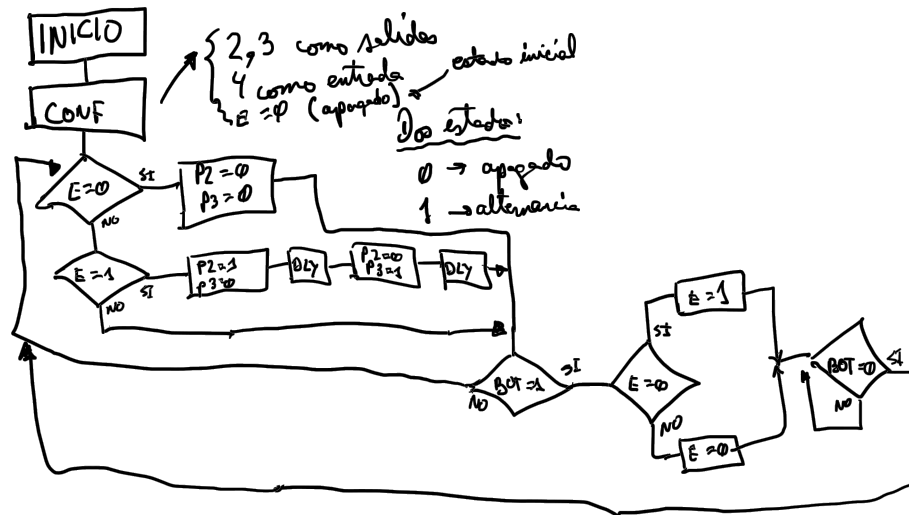 INICIO
CONF
2,3 como salidas
4 como entrada
E=0 (apagado)
estado inicial
Dos estados:
0 → apagado
1 → alternancia
E=0
SI
NO
P2=0
P3=0
E=1
SI
NO
P2=1
P3=0
DLY
P2=0
P3=1
DLY
BOT=1
SI
NO
E=0
SI
NO
E=1
E=0
BOT=0
SI
NO